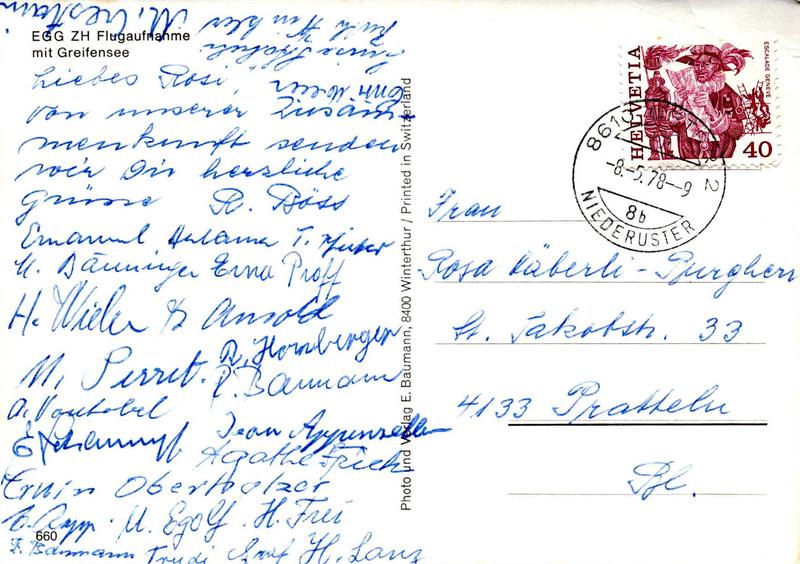 EGG ZH Flugaufnahme
mit Greifensee
Liebes Rosi,
von unserer Zusam
menkunft senden
wir Dir herzliche
Grüsse R. Böss
Emanuel
U. Bänninger Erna Proff
H. Wieler
M. Perret. R. Hornberger
R. Baumann
Jean Appenzeller
Agathe
Erwin Oberholzer
M. Egolf H. Frei
660
Baumann Trudi Graf H. Lanz
Photo und Verlag E. Baumann, 8400 Winterthur / Printed in Switzerland
HELVETIA
ESCALADE GENÈVE
40
8610
-8.-5.78--9
8b
NIEDERUSTER
2
Frau
Rosa Käberli-
St. Jakobstr. 33
4133 Pratteln
Bl.